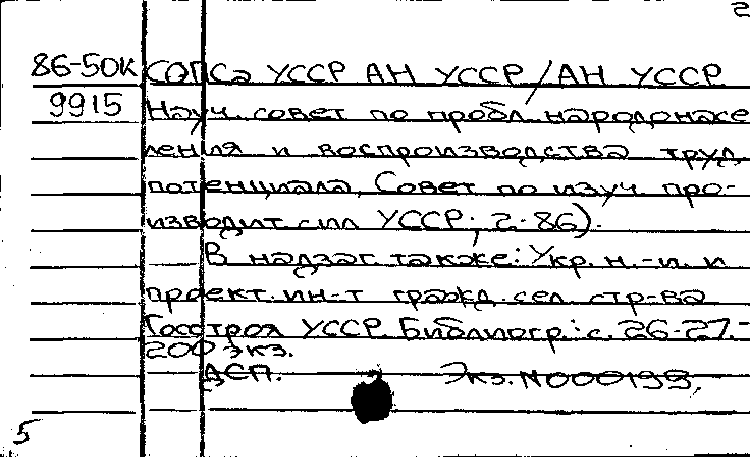 2
86-50К СОПСа УССР АН УССР / АН УССР
9915 Науч. совет по пробл. народонасе
ления и воспроизводства труд.
потенциала, Совет по изуч. про-
изводит. сил УССР; 2-86).
В надзаг. также: Укр. н.-и. и
проект. ин-т гражд. сел. стр-ва
Госстроя УССР. Библиогр.: с. 26-27.-
200 экз.
ДСП. Экз. N000199.
5